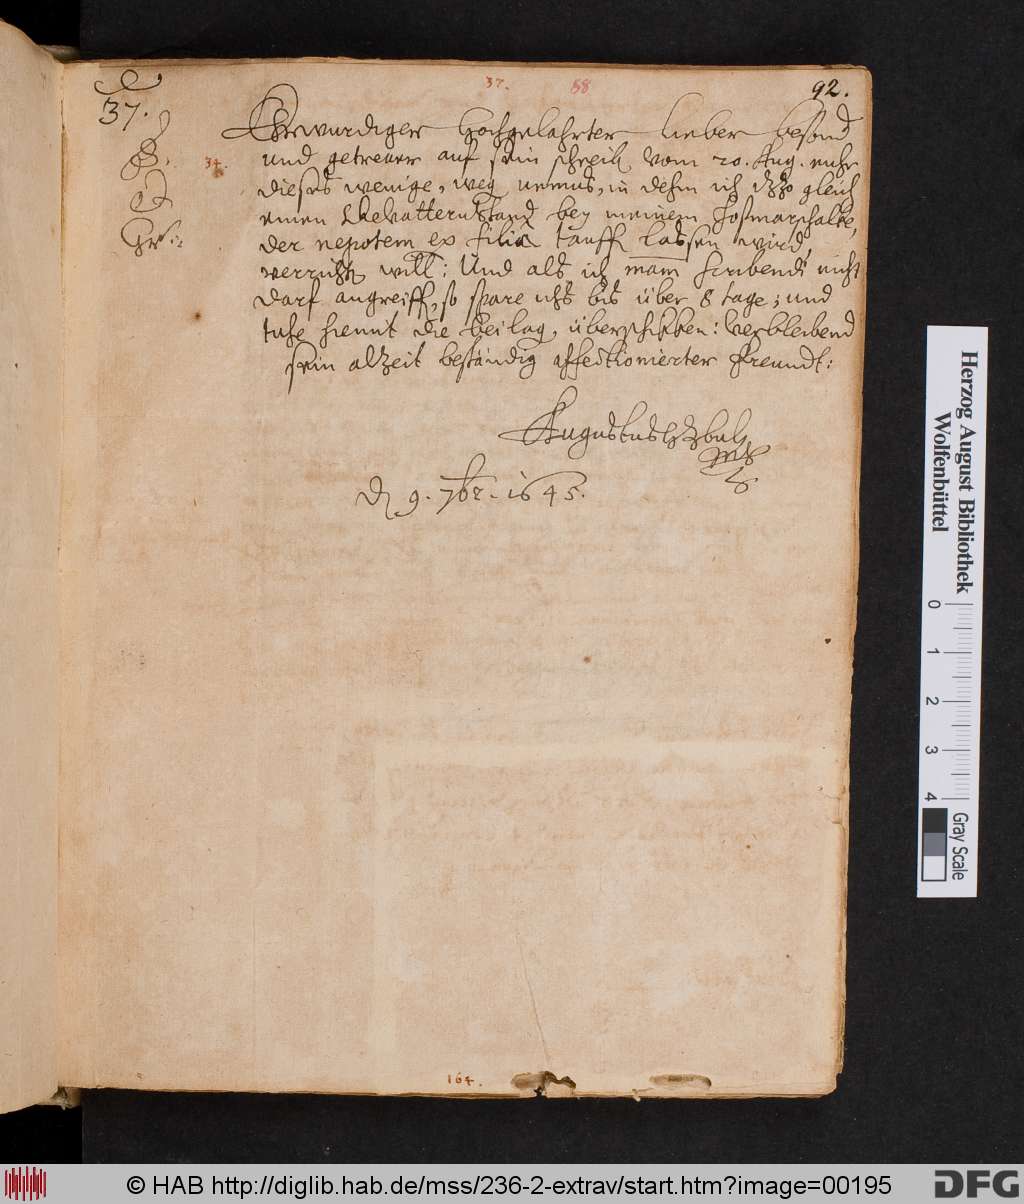 37.
37. 58
92.
34.
Ehrwurdiger Hochgelahrter lieber besond
und getrewer auf sein schreib vom 20. Aug. mehr
dieses wenige, weg in dehm ich gleich
einen Ghevatternstand bey meinem Hofmarschalke,
der nepotem ex filia tauff lassen wird,
verricht will: Und als ich manu scribendi nicht
darf angreiff, so spare ichs bis über 8 tage; und
tuhe hiemit die beilag, überschikken: Verbleibend
sein alzeit beständig affectionierter Freundt:
Augustus
d 9. 7br. 1645.
164.
Herzog August Bibliothek
Wolfenbüttel
0 1 2 3 4
Gray Scale
© HAB http://diglib.hab.de/mss/236-2-extrav/start.htm?image=00195
DFG